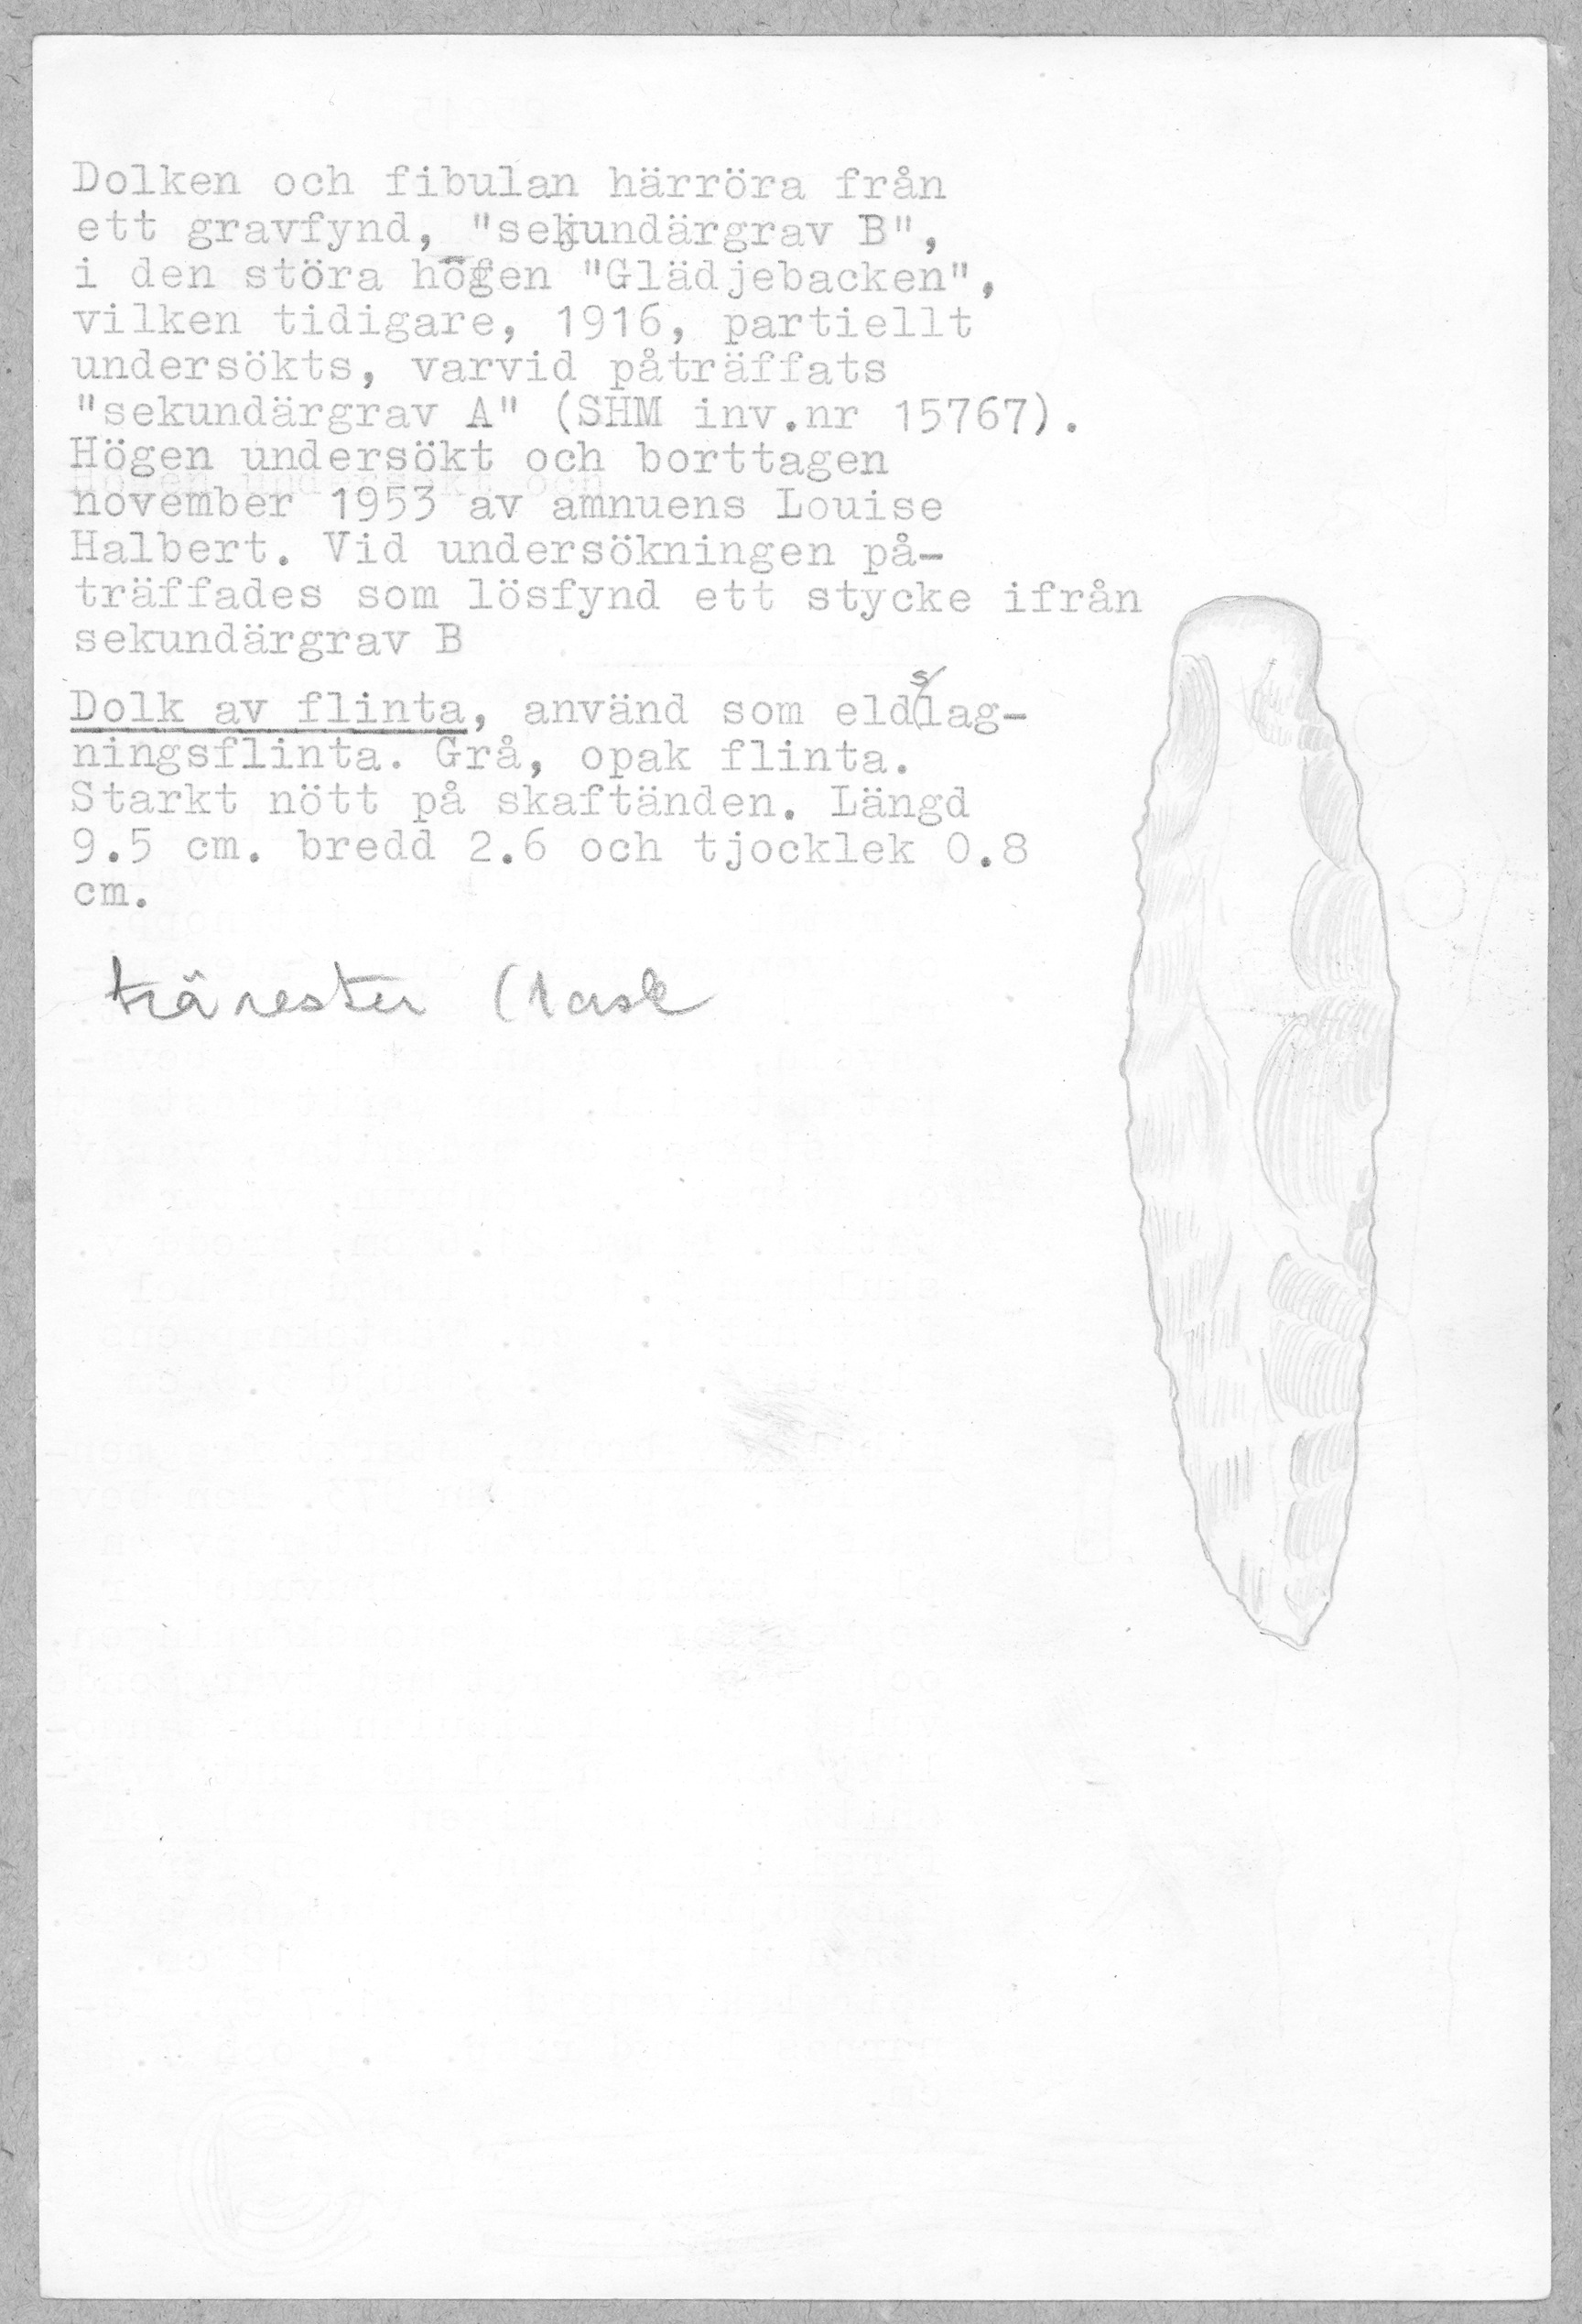 Dolken och fibulan härröra från
ett gravfynd, "sekundärgrav B",
i den störa högen "Glädjebacken",
vilken tidigare, 1916, partiellt
undersökts, varvid påträffats
"sekundärgrav A" (SHM inv.nr 15767).
Högen undersökt och borttagen
november 1953 av amnuens Louise
Halbert. Vid undersökningen på-
träffades som lösfynd ett stycke ifrån
sekundärgrav B
Dolk av flinta, använd som eldslag-
ningsflinta. Grå, opak flinta.
Starkt nött på skaftänden. Längd
9.5 cm. bredd 2.6 och tjocklek 0.8
cm.
trärester (1 ask